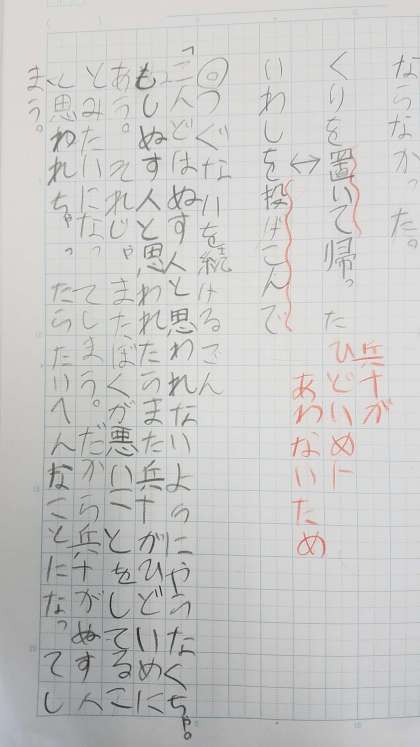 ならなかった。
兵十が
ひどいめに
あわないため
くりを置いて帰った
↔
いわしを投げこんで
◎つぐないを続けるごん
「こんどはぬす人と思われないようにやらなくちゃ。
もしぬす人と思われたらまた兵十がひどいめに
あう。それじゃまたぼくが悪いことをしてるこ
とみたいになってしまう。だから兵十がぬす人
と思われちゃったらたいへんなことになってし
まう。